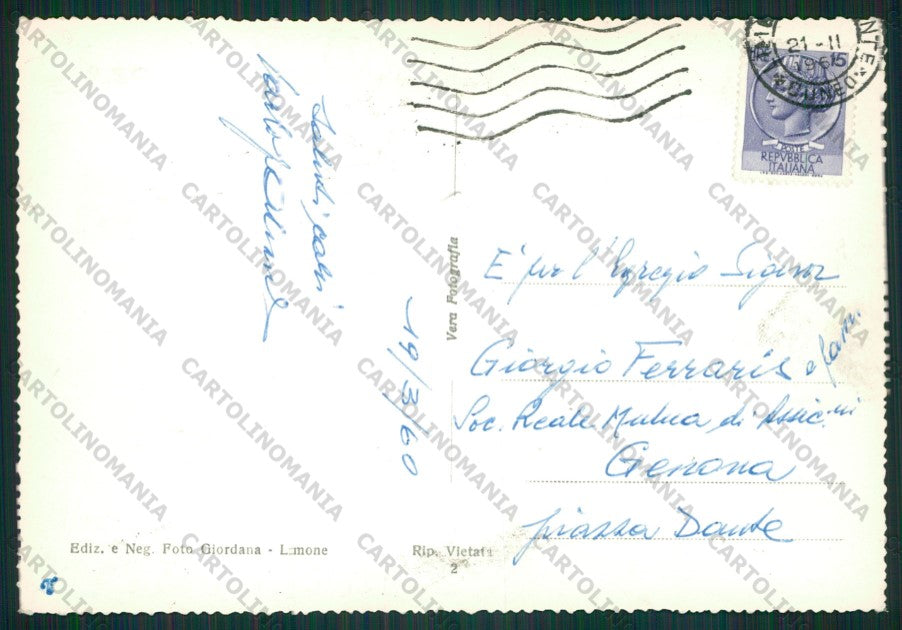 Saluti cari
19/3/60
Vera Fotografia
E' per l'Egregio Signor
Giorgio Ferraris e fam.
Soc. Reale Mutua di Assic.ni
Genova
piazza Dante
Ediz. e Neg. Foto Giordana - Limone
Rip. Vietata
2
21-11
POSTE
REPVBBLICA
ITALIANA
CARTOLINOMANIA